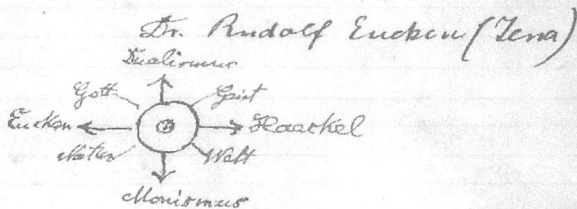 Dr. Rudolf Eucken (Jena)
Dualismus
Gott Geist
Eucken Haeckel
Natur Welt
Monismus